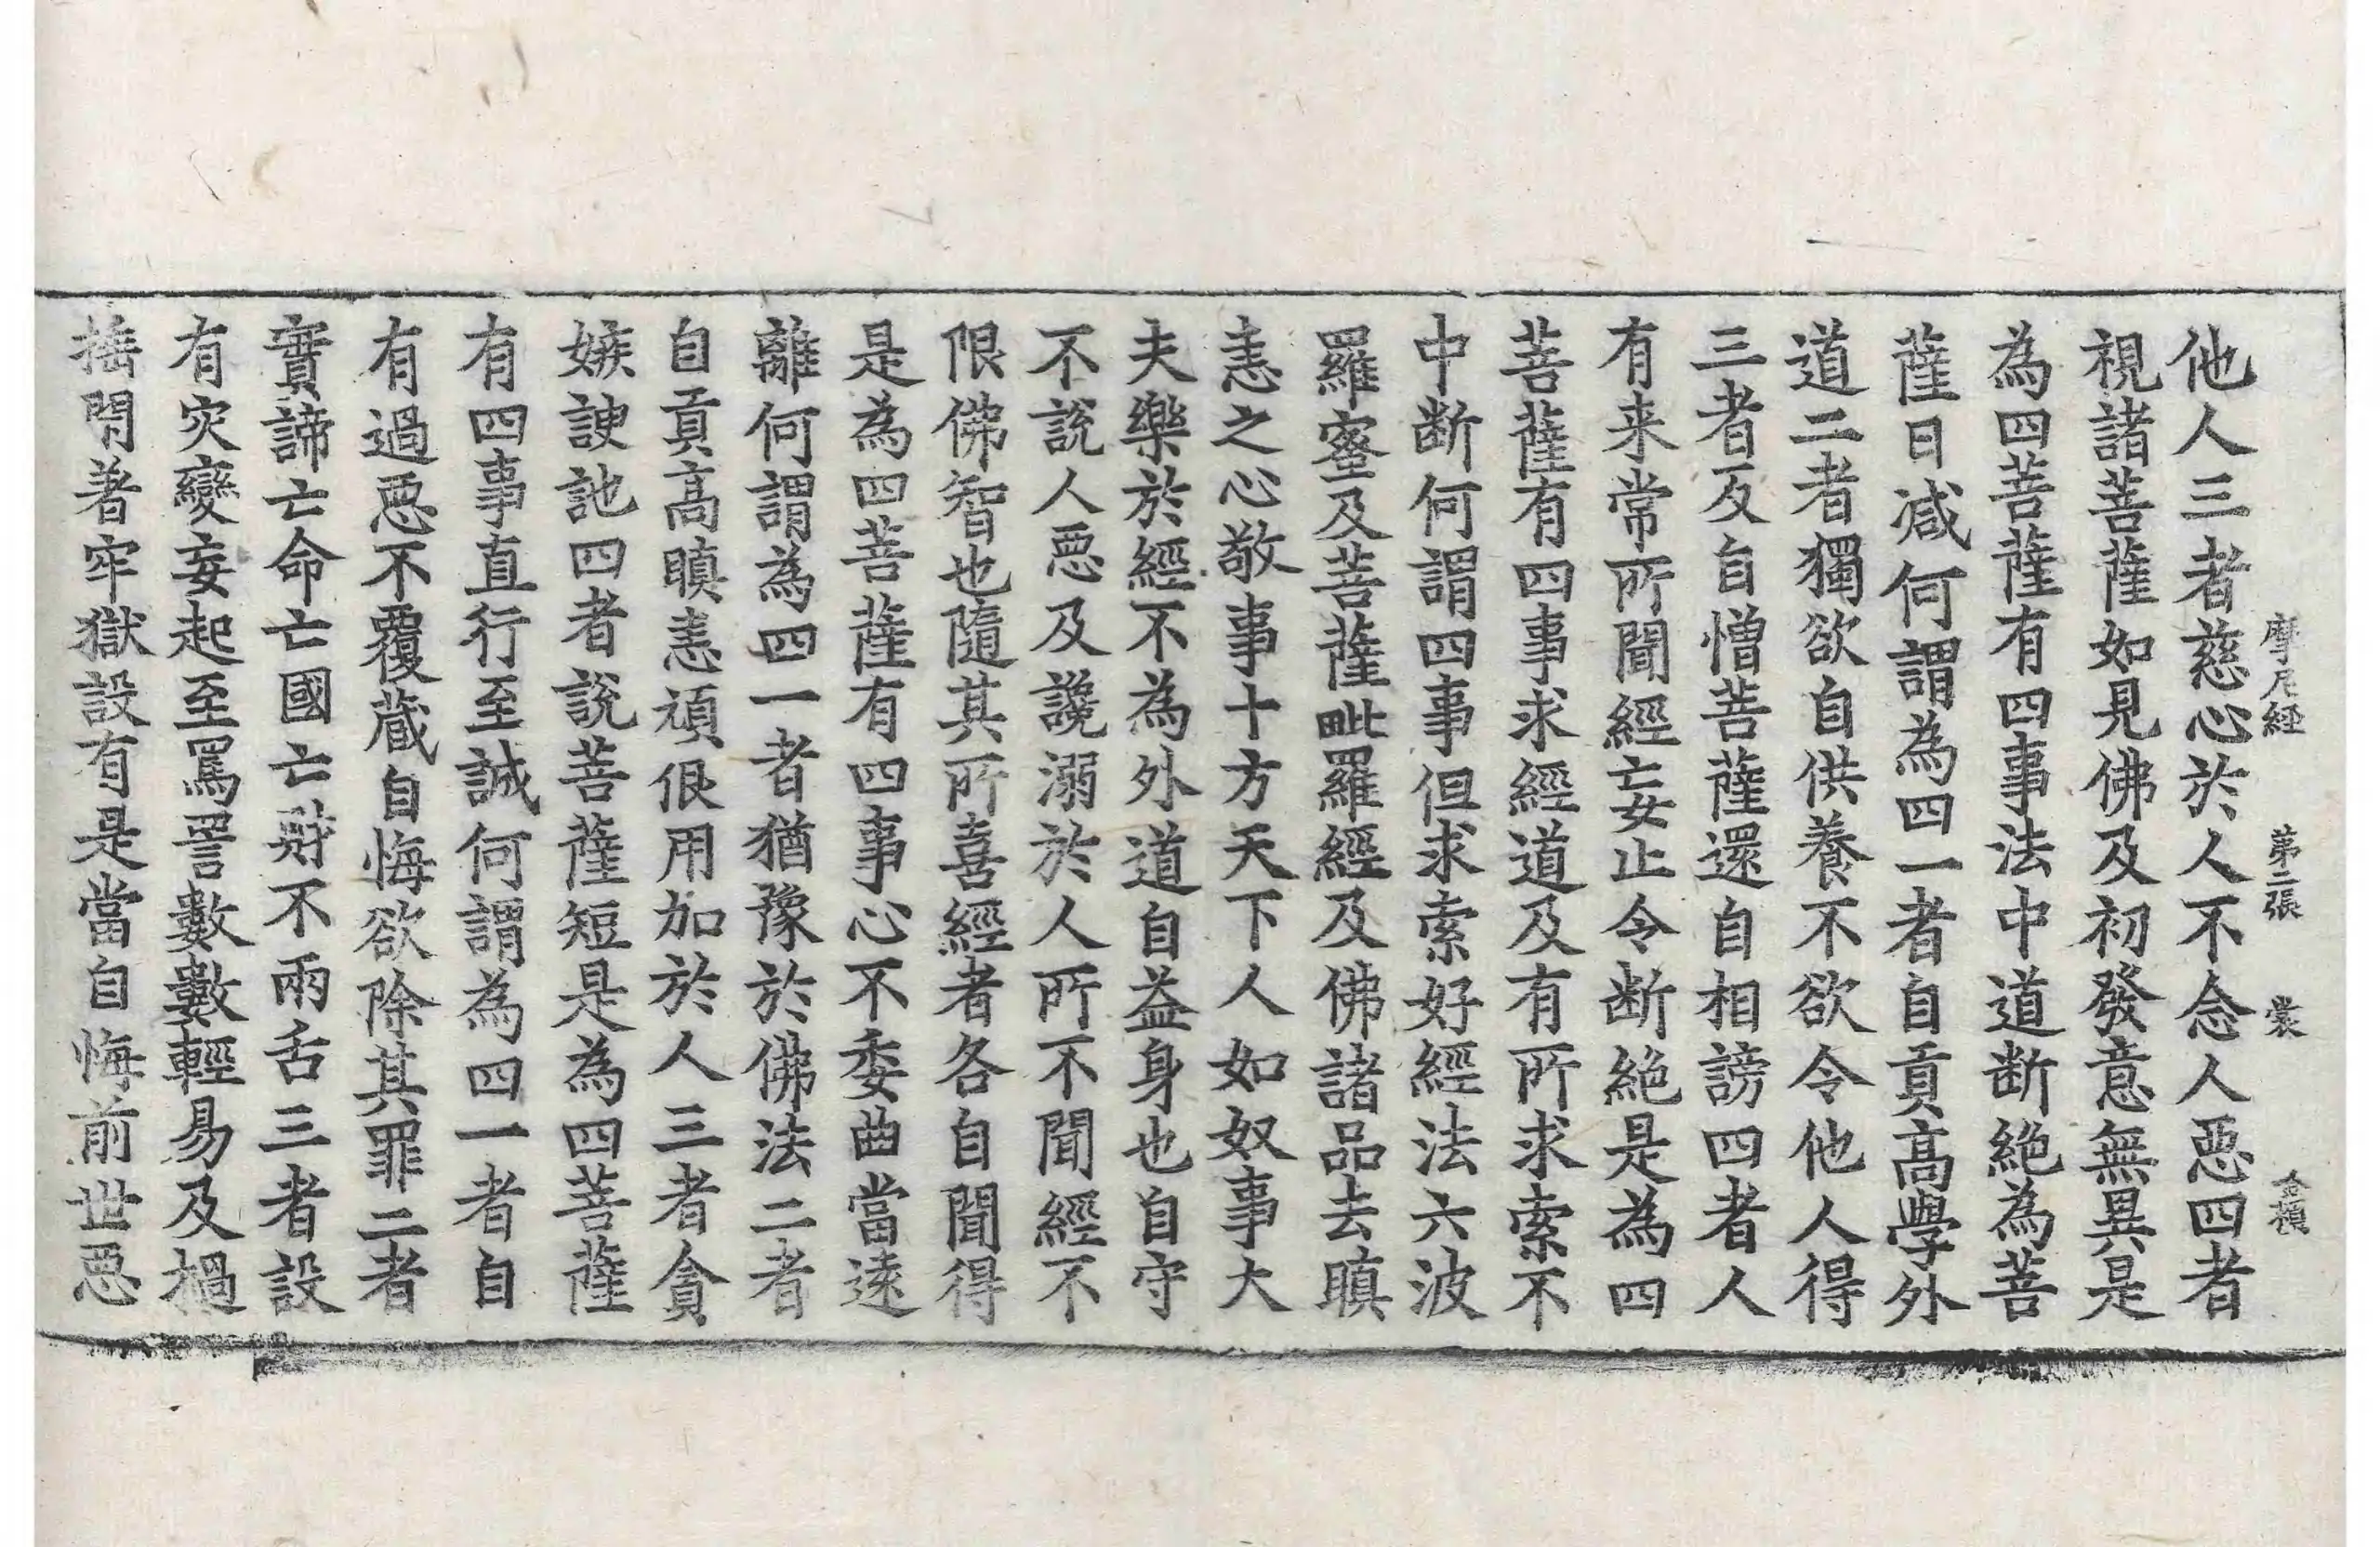 摩尼經 第二張 裳
他人三者慈心於人不念人惡四者
視諸菩薩如見佛及初發意無異是
為四菩薩有四事法中道断絶為菩
薩日减何謂為四一者自貢高學外
道二者獨欲自供養不欲令他人得
三者反自憎菩薩還自相謗四者人
有来常所聞經妄止令断絶是為四
菩薩有四事求經道及有所求索不
中断何謂四事但求索好經法六波
羅蜜及菩薩毗羅經及佛諸品去瞋
恚之心敬事十方天下人如奴事大
夫樂於經不為外道自益身也自守
不說人惡及讒溺於人所不聞經不
限佛智也隨其所喜經者各自聞得
是為四菩薩有四事心不委曲當遠
離何謂為四一者猶豫於佛法二者
自貢高瞋恚頑佷用加於人三者貪
嫉諛訑四者說菩薩短是為四菩薩
有四事直行至誠何謂為四一者自
有過惡不覆蔵自悔欲除其罪二者
實諦亡命亡國亡財不兩舌三者設
有灾變妄起至罵詈數數輕易及撾
捶閉著牢獄設有是當自悔前世惡